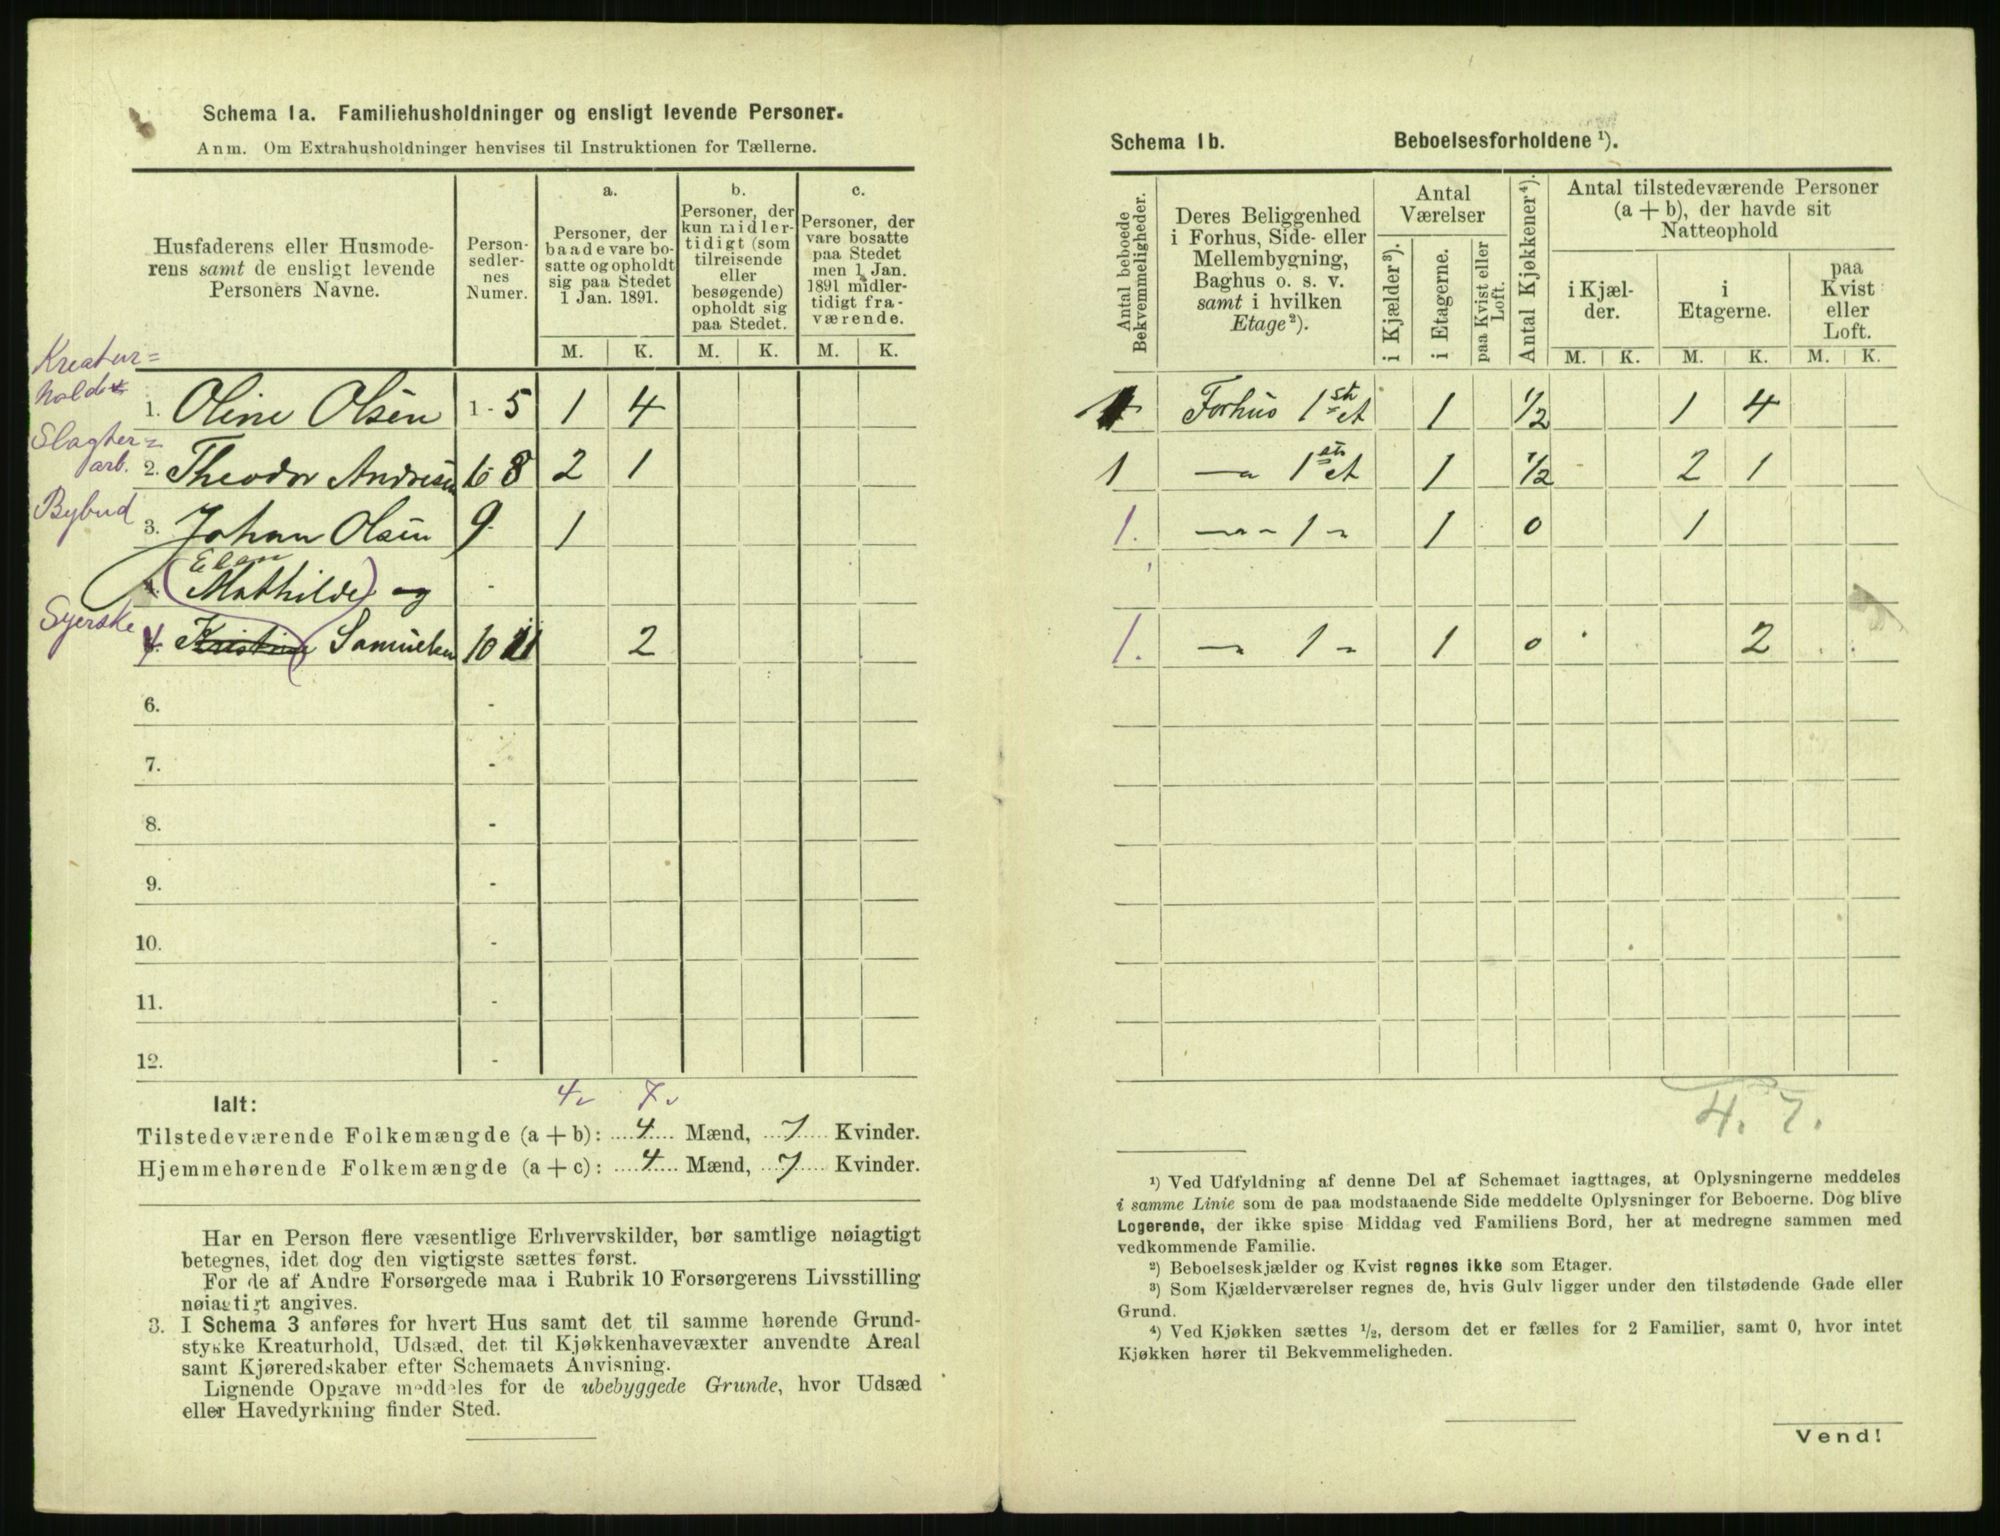 Schema 1a. Familiehusholdninger og ensligt levende Personer.
Anm. Om Extrahusholdninger henvises til Instruktionen for Tællerne.
Husfaderens eller Husmode-
rens samt de ensligt levende
Personers Navne.
Person-
sedler-
nes
Numer.
a.
Personer, der
baade vare bo-
satte og opholdt
sig paa Stedet
1 Jan. 1891.
b.
Personer, der
kun midler-
tidigt (som
tilreisende
eller
besøgende)
opholdt sig
paa Stedet.
c.
Personer, der
vare bosatte
paa Stedet
men 1 Jan.
1891 midler-
tidigt fra-
værende.
M. K. M. K. M. K.
Kreatur=
1. Oline Olsen 1 - 5 1 4
Slagter=
arb.
2. Theodor Andresen 6 - 8 2 1
Bybud
3. Johan Olsen 9 - 1
Elen
4. (Mathilde) og -
Syerske
4. Kristine Samuelsen 10 11 2
6. -
7. -
8. -
9. -
10. -
11. -
12. -
4 7
Ialt:
Tilstedeværende Folkemængde (a + b): 4 Mænd, 7 Kvinder.
Hjemmehørende Folkemængde (a + c): 4 Mænd, 7 Kvinder.
Har en Person flere væsentlige Erhvervskilder, bør samtlige nøiagtigt
betegnes, idet dog den vigtigste sættes først.
For de af Andre Forsørgede maa i Rubrik 10 Forsørgerens Livsstilling
nøiagtigt angives.
3. I Schema 3 anføres for hvert Hus samt det til samme hørende Grund-
stykke Kreaturhold, Udsæd, det til Kjøkkenhavevæxter anvendte Areal
samt Kjøreredskaber efter Schemaets Anvisning.
Lignende Opgave meddeles for de ubebyggede Grunde, hvor Udsæd
eller Havedyrkning finder Sted.
Schema 1b. Beboelsesforholdene ¹).
Antal beboede
Bekvemmeligheder.
Deres Beliggenhed
i Forhus, Side- eller
Mellembygning,
Baghus o. s. v.
samt i hvilken
Etage²).
Antal
Værelser
i Kjælder³).
i Etagerne.
paa Kvist eller
Loft.
Antal Kjøkkener⁴).
Antal tilstedeværende Personer
(a + b), der havde sit
Natteophold
i Kjæl-
der.
i
Etagerne.
paa
Kvist
eller
Loft.
M. K. M. K. M. K.
1 Forhus 1ste et 1 1/2 1 4
1 — " 1ste et 1 1/2 2 1
1. — " - 1 - " 1 0 1
1. — " 1 - " 1 0 2
4. 7.
¹) Ved Udfyldning af denne Del af Schemaet iagttages, at Oplysningerne meddeles
i samme Linie som de paa modstaaende Side meddelte Oplysninger for Beboerne. Dog blive
Logerende, der ikke spise Middag ved Familiens Bord, her at medregne sammen med
vedkommende Familie.
²) Beboelseskjælder og Kvist regnes ikke som Etager.
³) Som Kjælderværelser regnes de, hvis Gulv ligger under den tilstødende Gade eller
Grund.
⁴) Ved Kjøkken sættes ½, dersom det er fælles for 2 Familier, samt 0, hvor intet
Kjøkken hører til Bekvemmeligheden.
Vend!